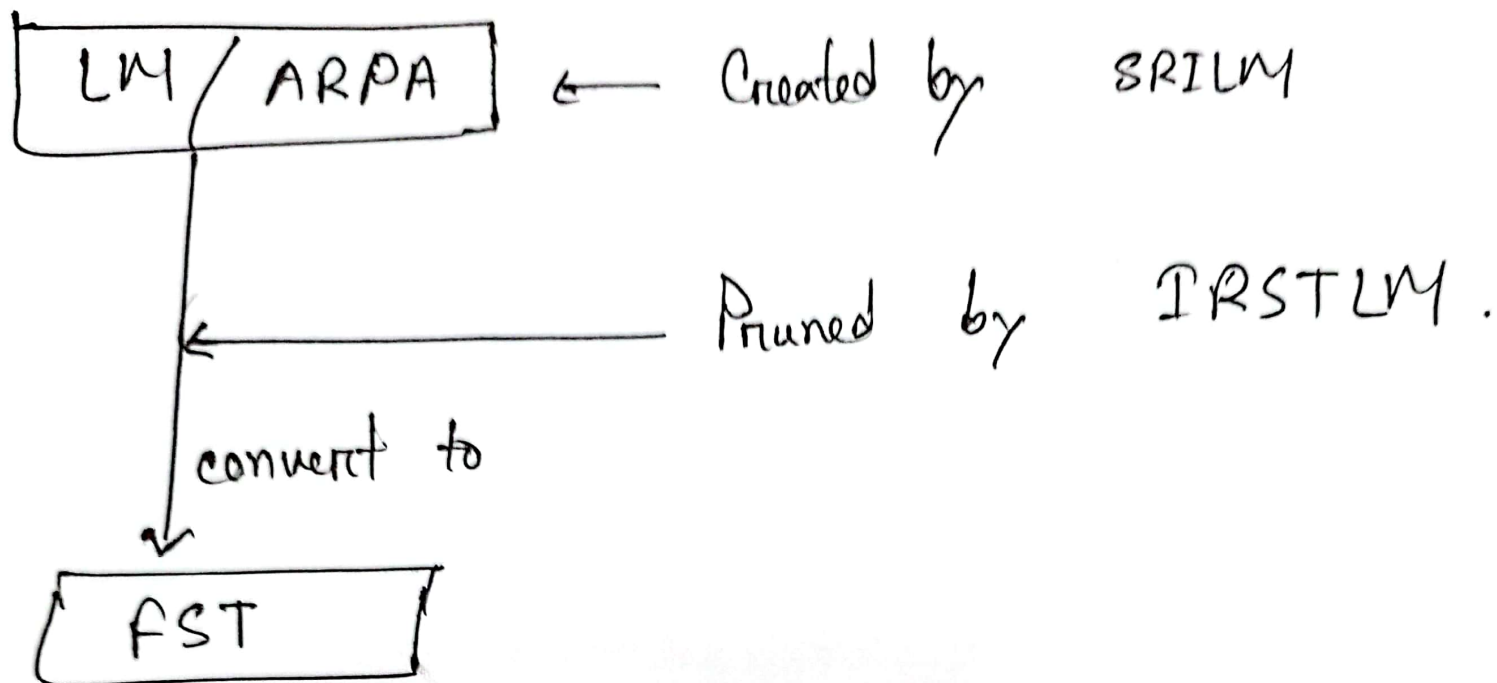 LM / ARPA ← Created by SRILM
Pruned by IRSTLM.
convert to
FST